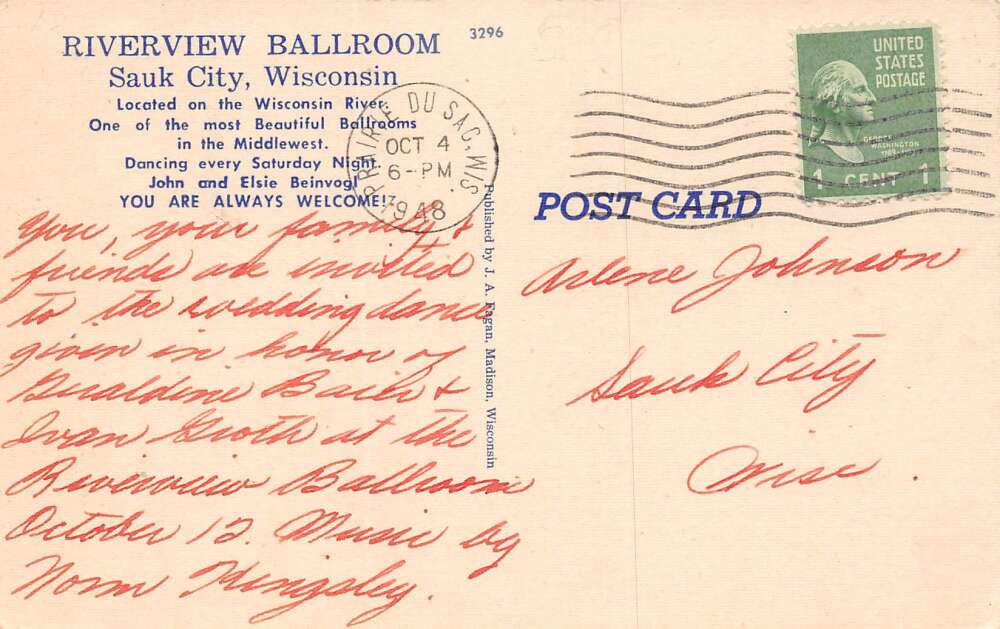 RIVERVIEW BALLROOM
3296
Sauk City, Wisconsin
Located on the Wisconsin River.
One of the most Beautiful Ballrooms
in the Middlewest.
Dancing every Saturday Night.
John and Elsie Beinvogl
YOU ARE ALWAYS WELCOME!
PRAIRIE DU SAC, WIS.
OCT 4
6-PM
1948
UNITED
STATES
POSTAGE
GEORGE
WASHINGTON
1 CENT 1
POST CARD
Published by J. A. Fagan, Madison, Wisconsin
You, your family &
friends are invited
to the wedding dance
given in honor of
Geraldine Baier &
Ivan Groth at the
Riverview Ballroom
October 12. Music by
Norm Kingsley.
Arlene Johnson
Sauk City
Wisc.